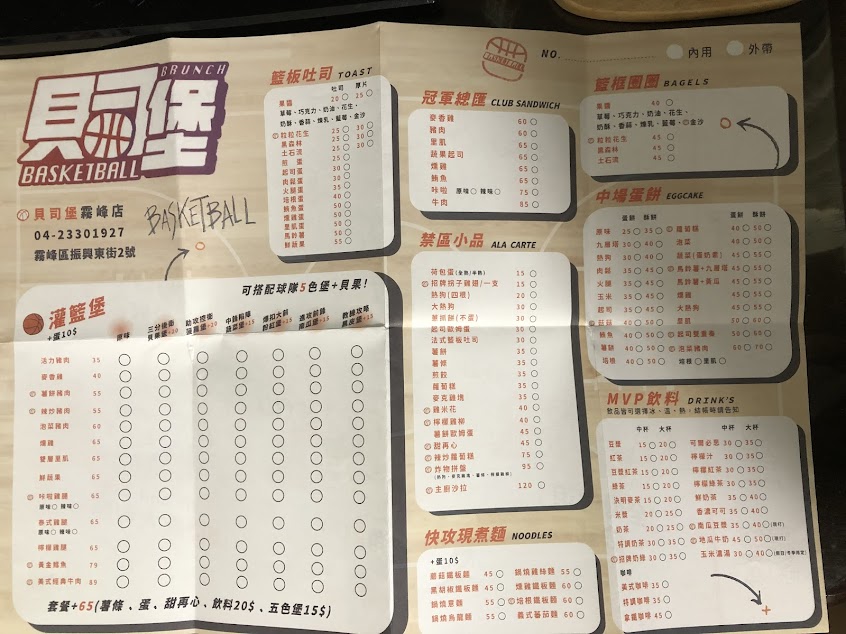 BRUNCH
貝司堡
BASKETBALL
貝司堡霧峰店
04-23301927
霧峰區振興東街2號
BASKETBALL
可搭配球隊5色堡+貝果!
灌籃堡
+蛋10$
原味
活力豬肉 35
麥香雞 40
薯餅豬肉 55
辣炒豬肉 55
泡菜豬肉 60
燻雞 65
雙層里肌 65
鮮蔬果 65
咔啦雞腿 65
原味 辣味
泰式雞腿 65
原味 辣味
檸檬雞腿 65
黃金鱈魚 79
美式經典牛肉 89
套餐+65(薯條、蛋、甜再心、飲料20$、五色堡15$)
籃板吐司 TOAST
吐司 厚片
果醬 20 25
草莓、巧克力、奶油、花生、
奶酥、香蒜、煉乳、藍莓、金沙
粒粒花生 25 30
黑森林 25 30
土石流 25 30
煎蛋 25
起司蛋 30
肉鬆蛋 30
火腿蛋 35
培根蛋 40
鮪魚蛋 50
燻雞蛋 50
里肌蛋 50
馬鈴薯 50
鮮蔬果 55
冠軍總匯 CLUB SANDWICH
麥香雞 60
豬肉 60
里肌 65
蔬果起司 65
燻雞 65
鮪魚 65
咔啦 原味 辣味 75
牛肉 85
禁區小品 ALA CARTE
荷包蛋(全熟/半熟) 15
招牌捲子雞翅/一支 15
熱狗(四根) 20
大熱狗 30
蔥抓餅(不蛋) 30
起司歐姆蛋 30
法式整板吐司 35
薯餅 35
薯條 35
煎餃 35
蘿蔔糕 35
麥克雞塊 35
雞米花 40
檸檬雞柳 40
薯餅歐姆蛋 40
甜再心 45
辣炒蘿蔔糕 75
炸物拼盤 95
主廚沙拉 120
快攻現煮麵 NOODLES
+蛋10$
蘑菇鐵板麵 45
黑胡椒鐵板麵 45
鍋燒意麵 55
鍋燒烏龍麵 55
鍋燒雞絲麵 55
燻雞鐵板麵 60
培根鐵板麵 60
義式蕃茄麵 60
NO.
內用 外帶
籃框圈圈 BAGELS
果醬 40
草莓、巧克力、奶油、花生、
奶酥、香蒜、煉乳、藍莓、金沙
粒粒花生 45
黑森林 45
土石流 45
中場蛋餅 EGGCAKE
蛋餅 酥餅 蛋餅 酥餅
原味 25 35 蘿蔔糕 40 50
九層塔 30 40 泡菜 40 50
熱狗 30 40 蔬菜(蛋奶素) 45 55
肉鬆 35 45 馬鈴薯+九層塔 45 55
火腿 35 45 馬鈴薯+黃瓜 45 55
玉米 35 45 燻雞 45 55
起司 35 45 鮪魚 45 55
菇菇 40 50 里肌 50 60
鮪魚 40 50 起司雙重奏 50 60
薯餅 40 50 泡菜豬肉 60 70
培根 40 50 培根 里肌
MVP飲料 DRINK'S
飲品皆可選擇冰、溫、熱,結帳時請告知
中杯 大杯 中杯 大杯
豆漿 15 20 可爾必思 30 35
紅茶 15 20 檸檬汁 30 35
豆漿紅茶 15 20 檸檬紅茶 30 35
綠茶 15 20 檸檬綠茶 30 35
決明麥茶 15 20 鮮奶茶 35 40
米漿 20 25 香濃可可 35 40
奶茶 20 25 南瓜豆漿 35 40(現打)
特調奶茶 30 35 地瓜牛奶 45 50(現打)
招牌奶綠 30 35 玉米濃湯 30 40
咖啡
美式咖啡 35
特調咖啡 35
拿鐵咖啡 45